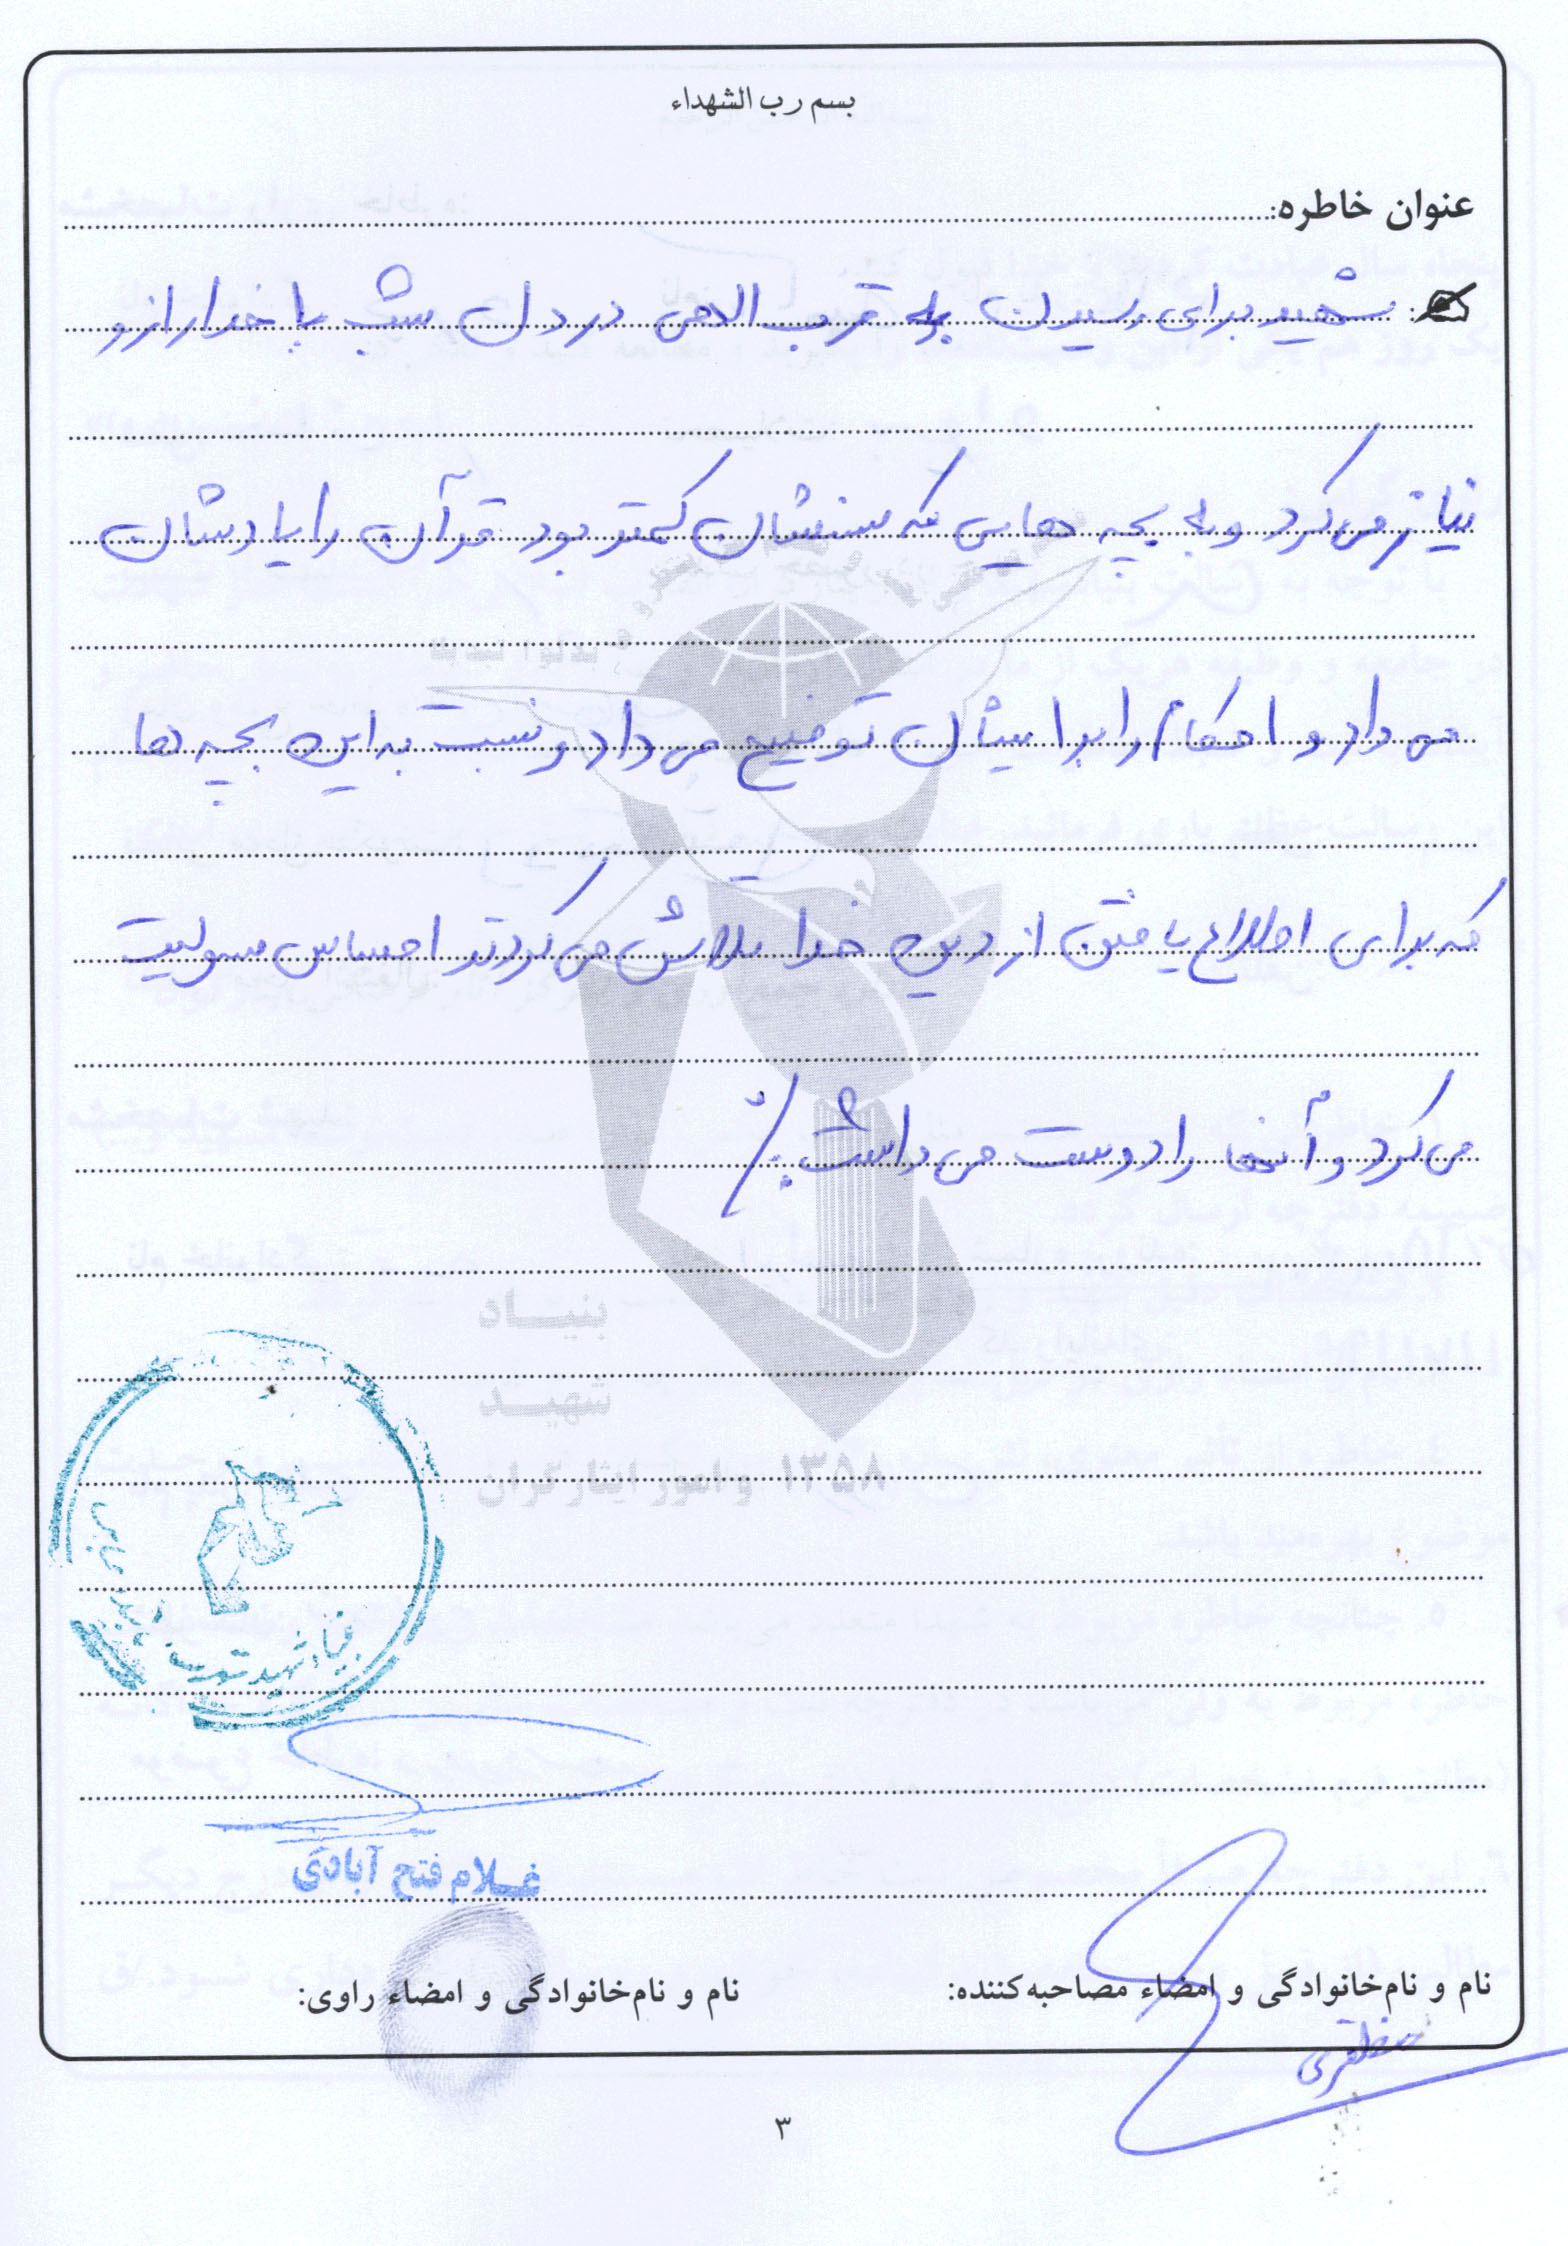 بسم رب الشهداء
عنوان خاطره:
شهید برای رسیدن به قرب الاهی در دل شب با خدا راز و
نیاز می کرد و به بچه هایی که سنشان کمتر بود قرآن را یادشان
می داد و احکام را برایشان توضیح می داد و نسبت به این بچه ها
که برای اطلاع یافتن از دین خدا تلاش می کردند احساس مسولیت
می کرد و آنها را دوست می داشت ./
بنیاد
شهید
و امور ایثارگران ۱۳۵۸
بنیاد شهید
غلام فتح آبادی
نام و نام‌خانوادگی و امضاء مصاحبه‌کننده:
نام و نام‌خانوادگی و امضاء راوی:
۳